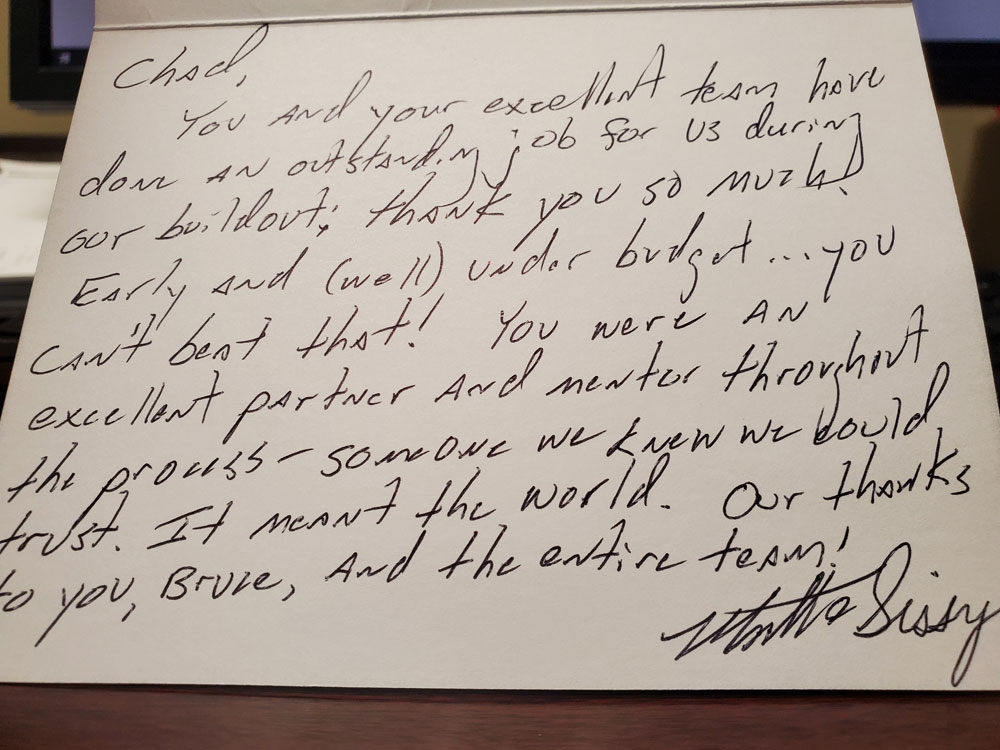 Chad,
You and your excellent team have
done an outstanding job for us during
our buildout; thank you so much!
Early and (well) under budget...you
can't beat that! You were an
excellent partner and mentor throughout
the process - someone we knew we could
trust. It meant the world. Our thanks
to you, Bruce, and the entire team!
Sissy